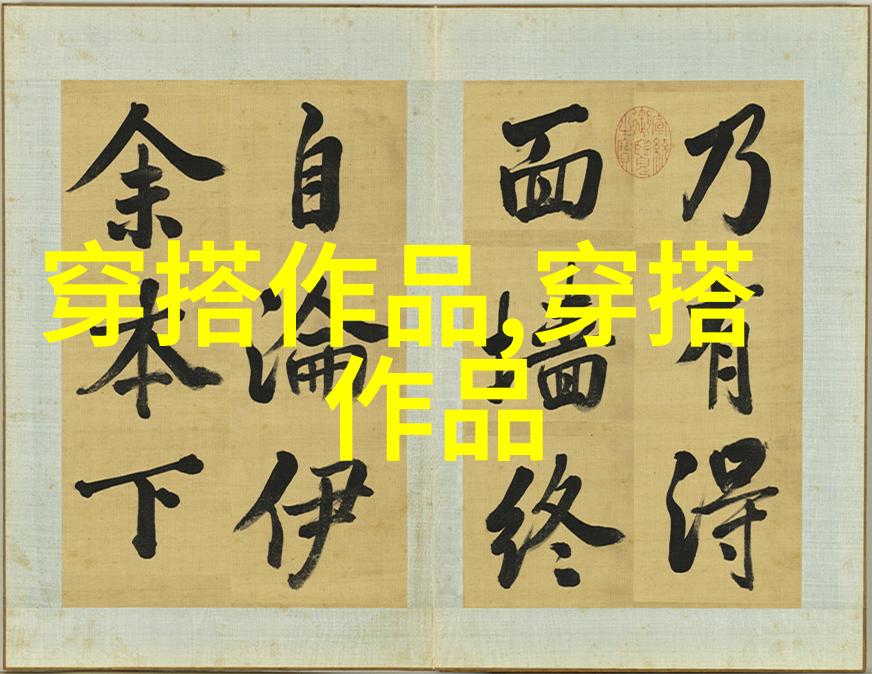 穿搭作品,穿搭
作品
乃有得
面墻終
自淪伊
余本下